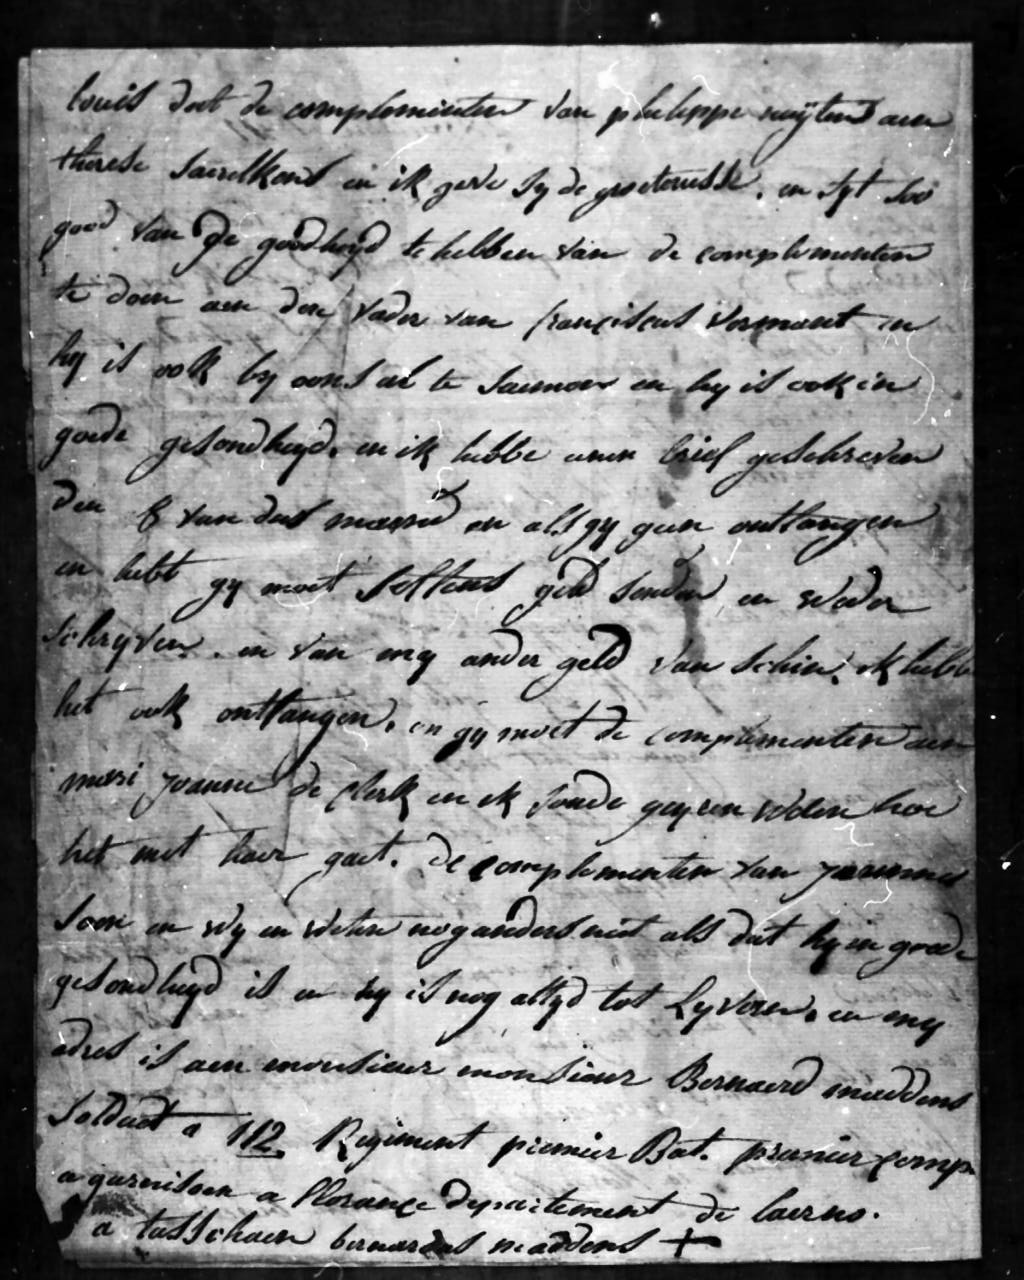 louis doet de complementen van philippe nuytens aen
therese saerelkens en ik geve sy de groetenisse. en syt soo
goed van de goedheyd te hebben van de complementen
te doen aen den vader van franciscus vermant en
hy is ook by oons al te saemen en hy is ook in
goede gesondheyd. en ik hebbe eenen brief geschreven
den 8 van das maend en als gy geen ontfangen
en hebt gy moet seffens geld senden en weder
schryven. en van my ander geld van schin. ik hebbe
het ook ontfangen. en gy moet de complementen aen
mari joanne de clerk en ik soude geyren weten hoe
het met haer gaet. de complementen van joannes
soen en wy en weten nog anders niet als dat hy in goede
gesondheyd is en hy is nog altyd tot Lyveren. en my
adres is aen monsieur monsieur Bernaerd maddens
soldaet a 112 Regiment premier Bat. premier comp
a garnisoen a florance departement de laerno.
a tasschaen bernardus maddens +